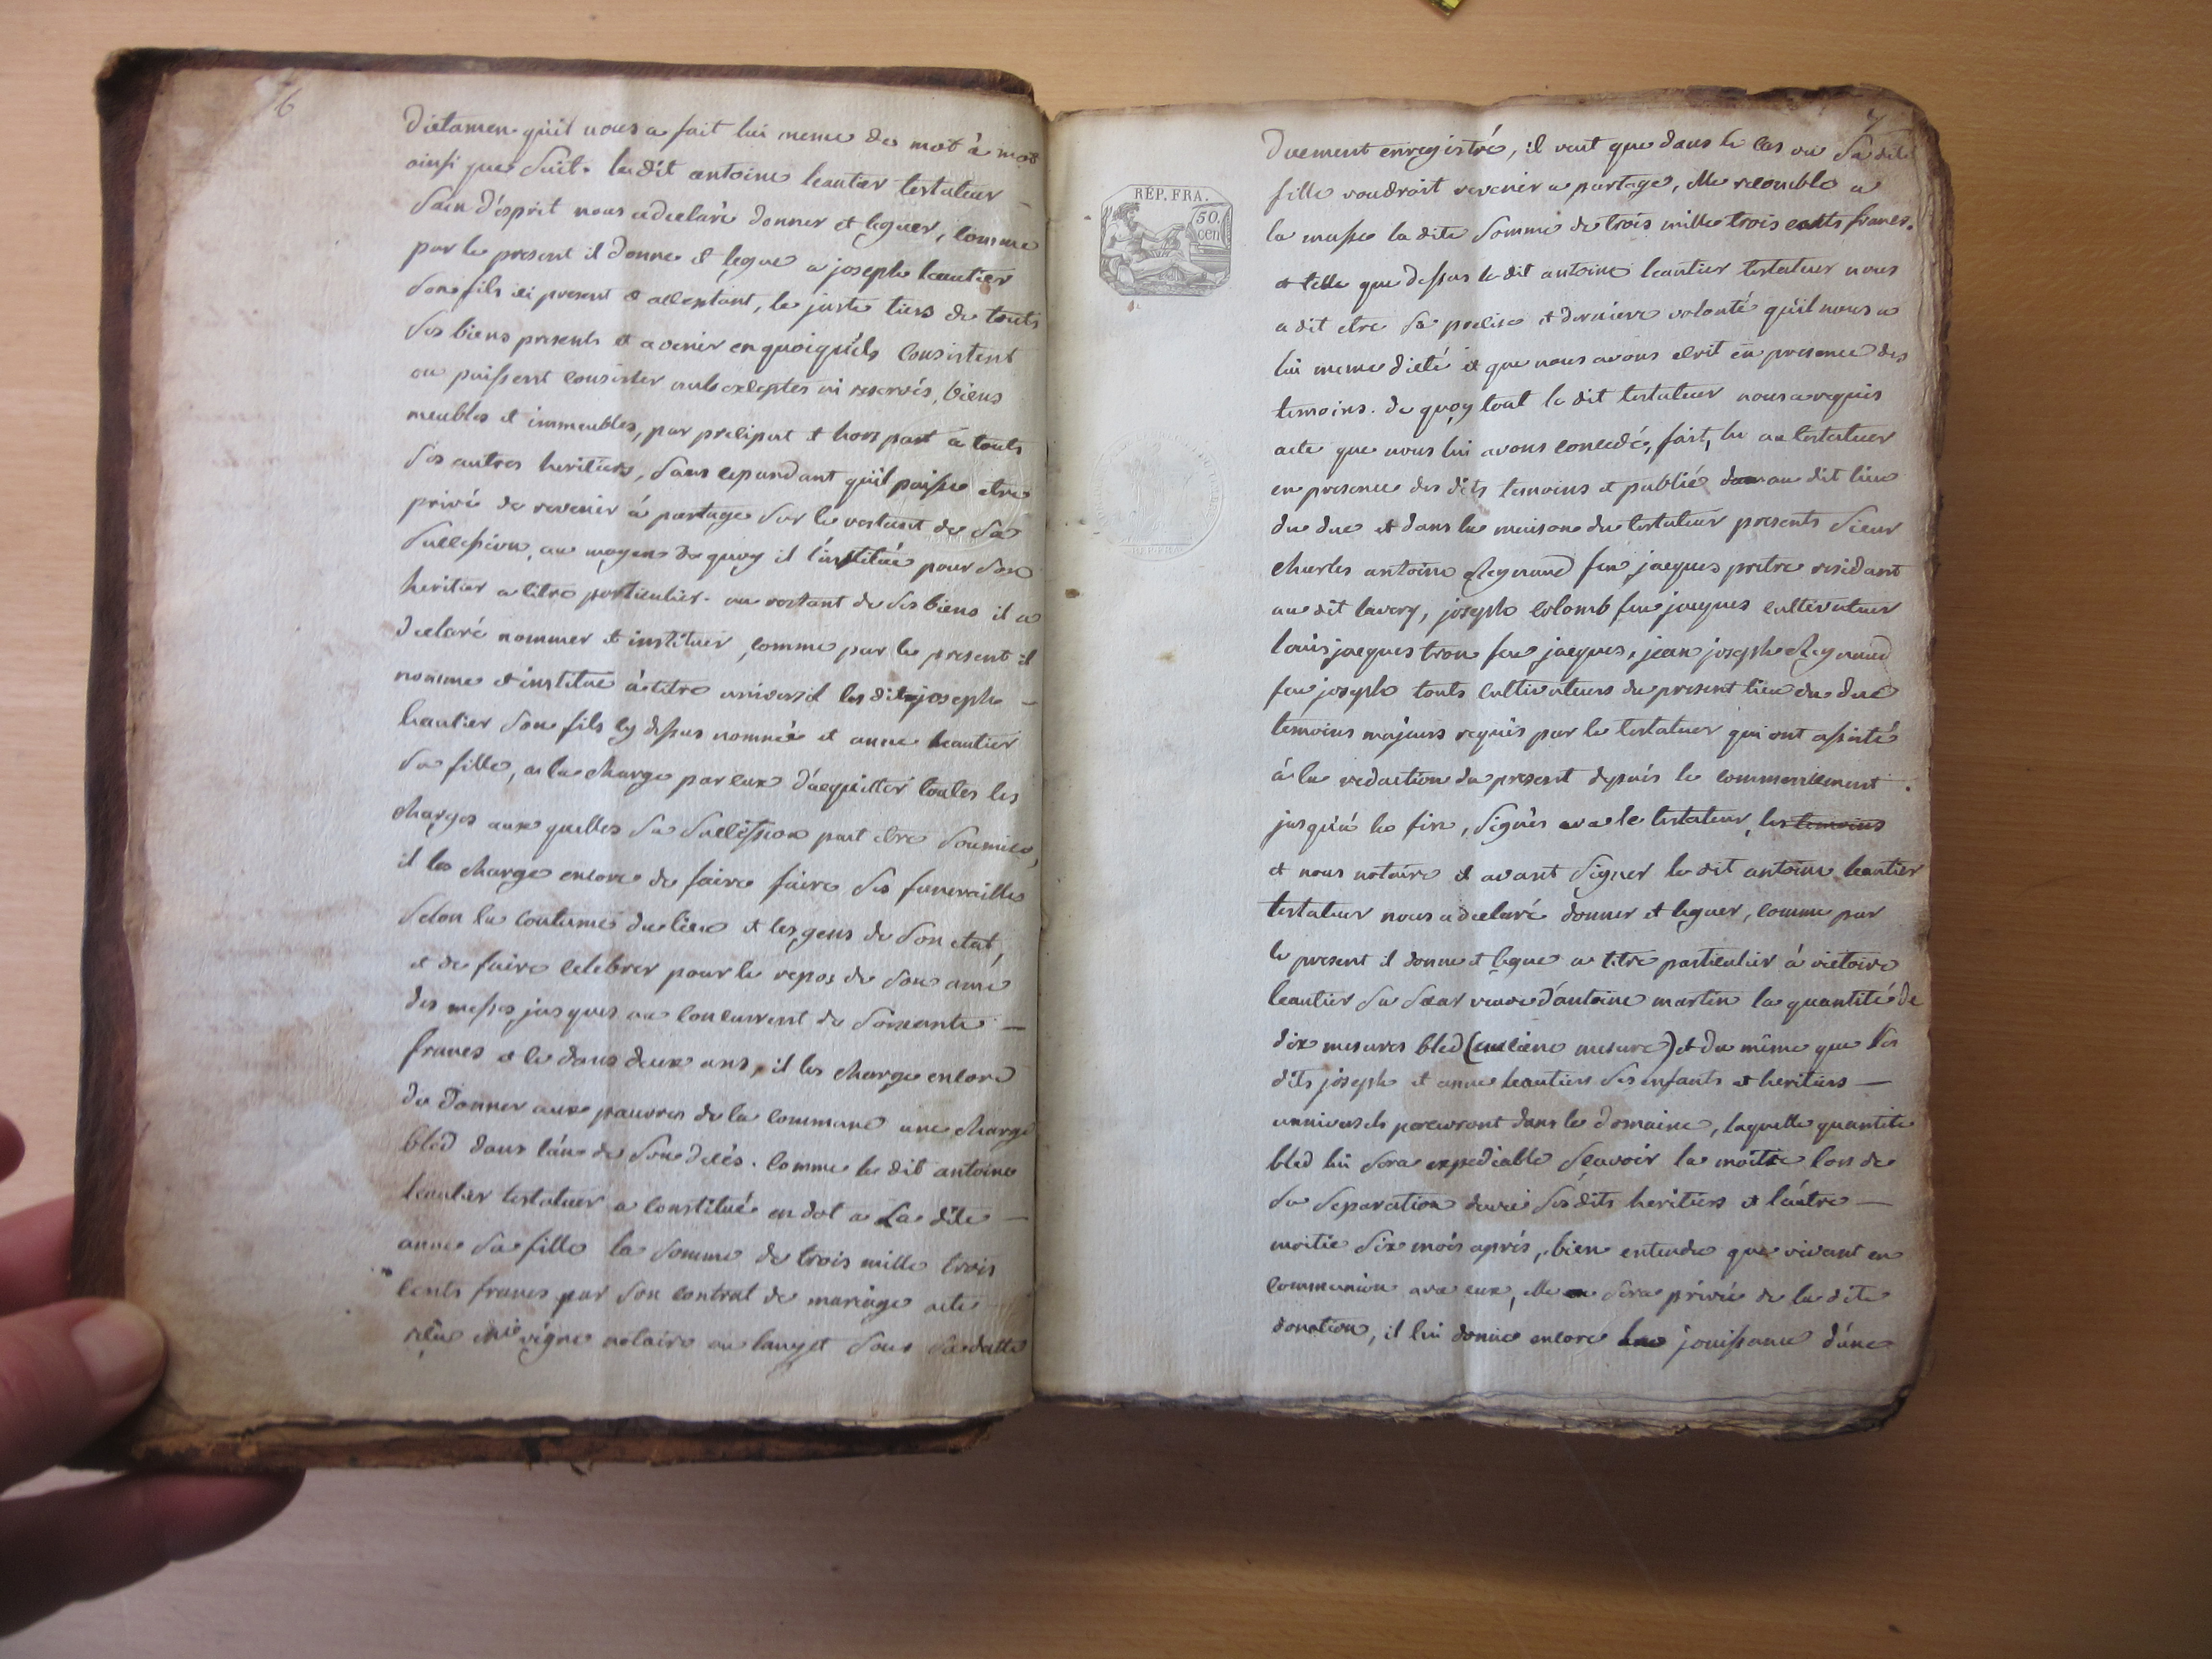 6
Dictamen qu'il nous a fait lui meme de mot à mot
ainsi que suit. le dit antoine leautier testateur
sain d'esprit nous a declaré donner et leguer, comme
par le present il donne et legue a joseph leautier
son fils ici present et acceptant, le juste tiers de touts
ses biens presents et avenir en quoiqu'ils consistent
ou puissent consister nuls exceptés ni reservés, biens
meubles et immeubles, par preciput et hors part à touts
ses autres heritiers, sans cependant qu'il puisse etre
privé de revenir à partage sur le restant de sa
succession, au moyen de quoy il l'institue pour son
heritier a titre particulier. au restant de ses biens il a
declaré nommer et instituer, comme par le present il
nomme et institue à titre universel les dits joseph
leautier son fils cy dessus nommé et anne leautier
sa fille, a la charge par eux d'acquitter toutes les
charges aux quelles sa succession peut etre soumise,
il les charge encore de faire faire ses funerailles
selon la coutume du lieu et les gens de son etat,
et de faire celebrer pour le repos de son ame
des messes jusques au concurrent de soixante
francs et ce dans deux ans, il les charge encore
de donner aux pauvres de la commune une charge
bled dans l'an de son decés. comme le dit antoine
leautier testateur a constitué en dot a La dite
anne sa fille la somme de trois mille trois
cents francs par son contrat de mariage acte
reçu me vigne notaire au lauzet sous sa datte
7
RÉP. FRA.
50.
cen
Duement enregistré, il veut que dans le cas ou Sa dite
fille voudroit revenir a partage, elle recomble a
la masse la dite somme de trois mille trois cents francs.
et telle que dessus le dit antoine leautier testateur nous
a dit etre sa precise et derniere volonté qu'il nous a
lui meme dicté et que nous avons ecrit en presence des
temoins. de quoy tout le dit testateur nous a requis
acte que nous lui avons concedé, fait, lu au testateur
en presence des dits temoins et publié au dit lieu
du duc et dans la maison du testateur presents sieur
charles antoine Reynaud feu jacques pretre residant
au dit lavery, joseph colomb feu jacques cultivateur
louis jacques tron feu jacques, jean joseph Reynaud
feu joseph touts cultivateurs du present lieu du duc
temoins majeurs requis par le testateur qui ont assisté
à la redaction du present depuis le commencement
jusqu'à la fin, signés avec le testateur, les temoins
et nous notaire et avant signer le dit antoine leautier
testateur nous a declaré donner et leguer, comme par
le present il donne et legue a titre particulier à victoire
leautier sa sœur veuve d'antoine martin la quantité de
dix mesures bled (ancienne mesure) et du même que les
dits joseph et anne leautier ses enfants et heritiers
universels percevront dans le domaine, laquelle quantité
bled lui sera expediable sçavoir la moitié lors de
sa separation d'avec ses dits heritiers et l'autre
moitié six mois aprés, bien entendu que vivant en
communion avec eux, elle sera privée de la dite
donation, il lui donne encore la jouissance d'une